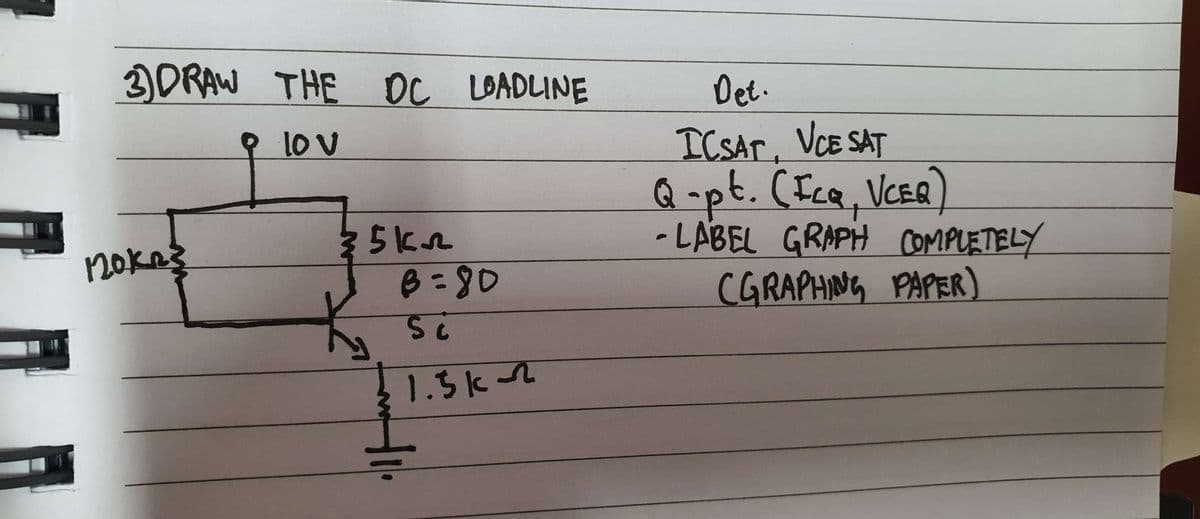 3) DRAW THE DC LOADLINE
10 V
120KΩ
5KΩ
β = 80
Si
1.5KΩ
Det.
ICSAT, VCE SAT
Q-pt. (ICQ, VCEQ)
- LABEL GRAPH COMPLETELY
(GRAPHING PAPER)